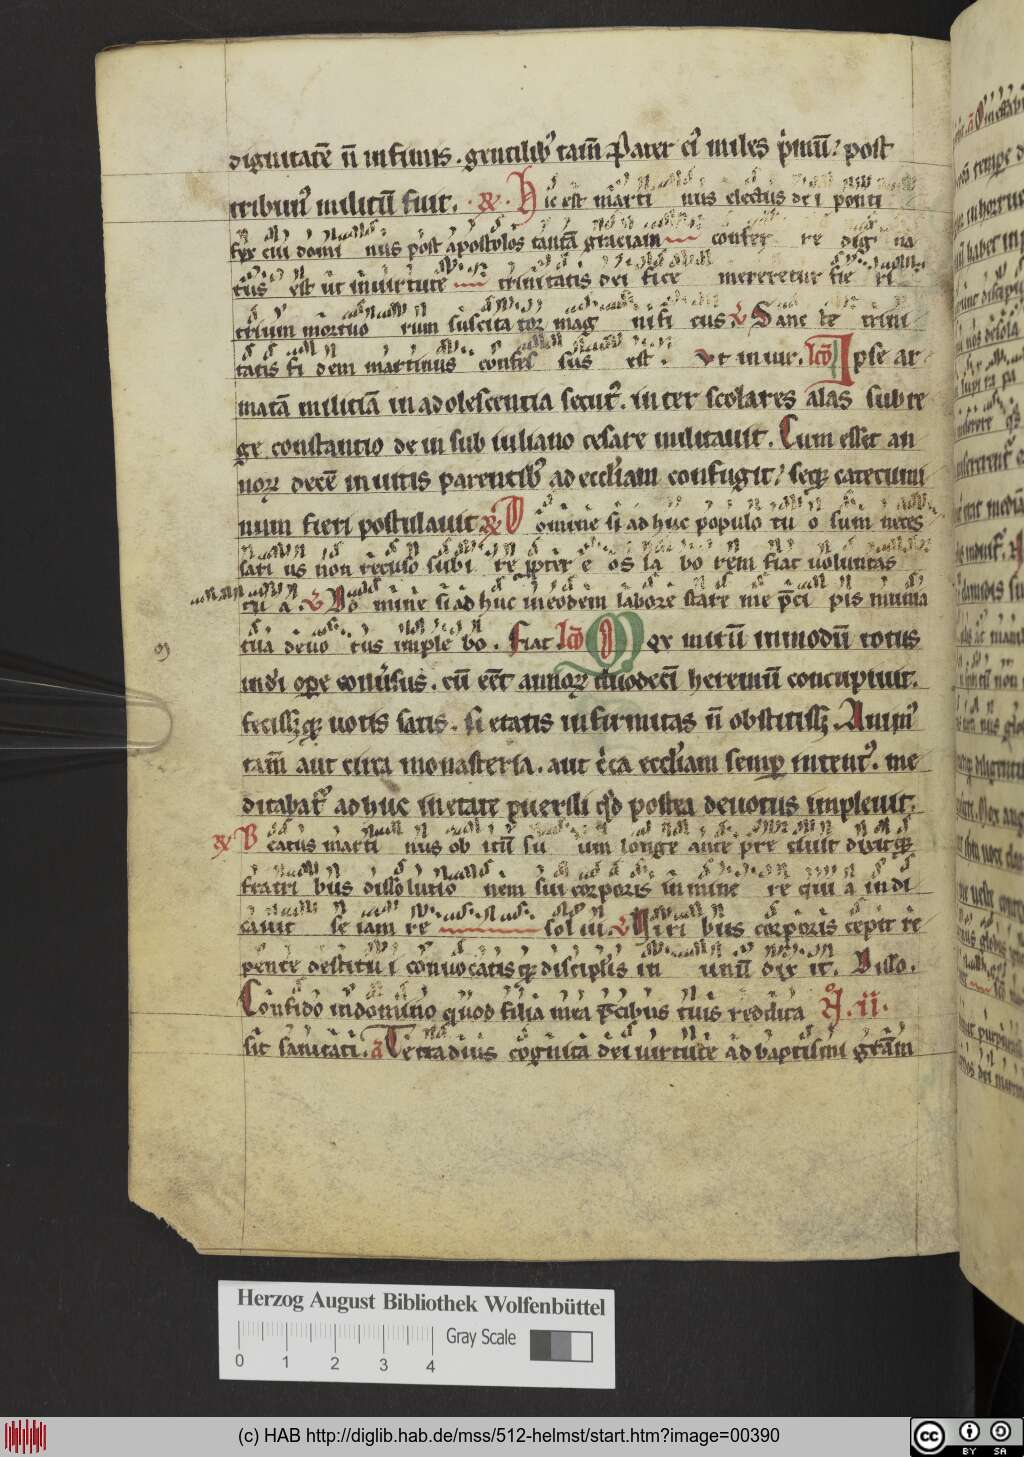 dignitatē n̄ infimis . gentilibꝰ tam̄ Pater eī miles p̄mū : post
tribunꝰ militū fuit . R. Hic est marti nus electus dei ponti
fex cui domi nus post apostolos tantā graciam confer re dig na
tus est ut in virtute trinitatis dei fice mereretur fie ri
trium mortuo rum suscita tor mag nifi cus V Sanc te trini
tatis fi dem martinus confes sus est . Ut in vir . lcō Ipse ar
matā militiā in adolescentia secutꝰ . inter scolares alas sub re
ge constantio dein sub iuliano cesare militauit . Cum esset an
noꝝ decē inuitis parentibꝰ ad eccl'iam confugit : seqꝫ catecumi
num fieri postulauit R D omine si adhuc populo tu o sum neces
sari us non recuso subi re ꝓpter e os la bo rem fiat uoluntas
tu a . V Do mine si adhuc in eodem labore stare me p̄ci pis munia
tua deuo tus imple bo . Fiat lcō M ox mirū inmodū totus
in dī oꝑe conuersus . cū eēt annoꝝ duodecī heremū concupiuit .
fecissꝫqꝫ uotis satis . si etatis infirmitas n̄ obstitissꝫ . Animꝰ
tam̄ aut circa monasteria . aut c̄ca eccl'iam semꝑ intentꝰ . me
ditabat᷑ adhuc in etate puerili qd̄ postea deuotus impleuit .
R B eatus marti nus ob itū su um longe ante pre ciuit dixitqꝫ
fratri bus dissolutio nem sui corporis in mine re qui a in di
cauit se iam re solui . V Viri bus corporis cepit re
pente destitu i conuocatisqꝫ discipl'is in unū dix it . Disso .
Confido in domino quod filia mea p̄cibus tuis reddita N . ii .
sit sanitati . a Tetradius cognita dei uirtute ad baptismi gr̄am
Herzog August Bibliothek Wolfenbüttel
Gray Scale
0 1 2 3 4
(c) HAB http://diglib.hab.de/mss/512-helmst/start.htm?image=00390
cc BY SA